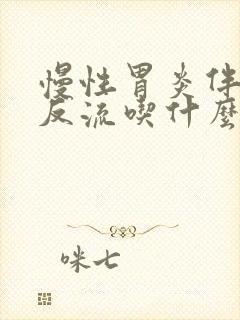 慢性胃炎伴
反流喫什麼
咪七